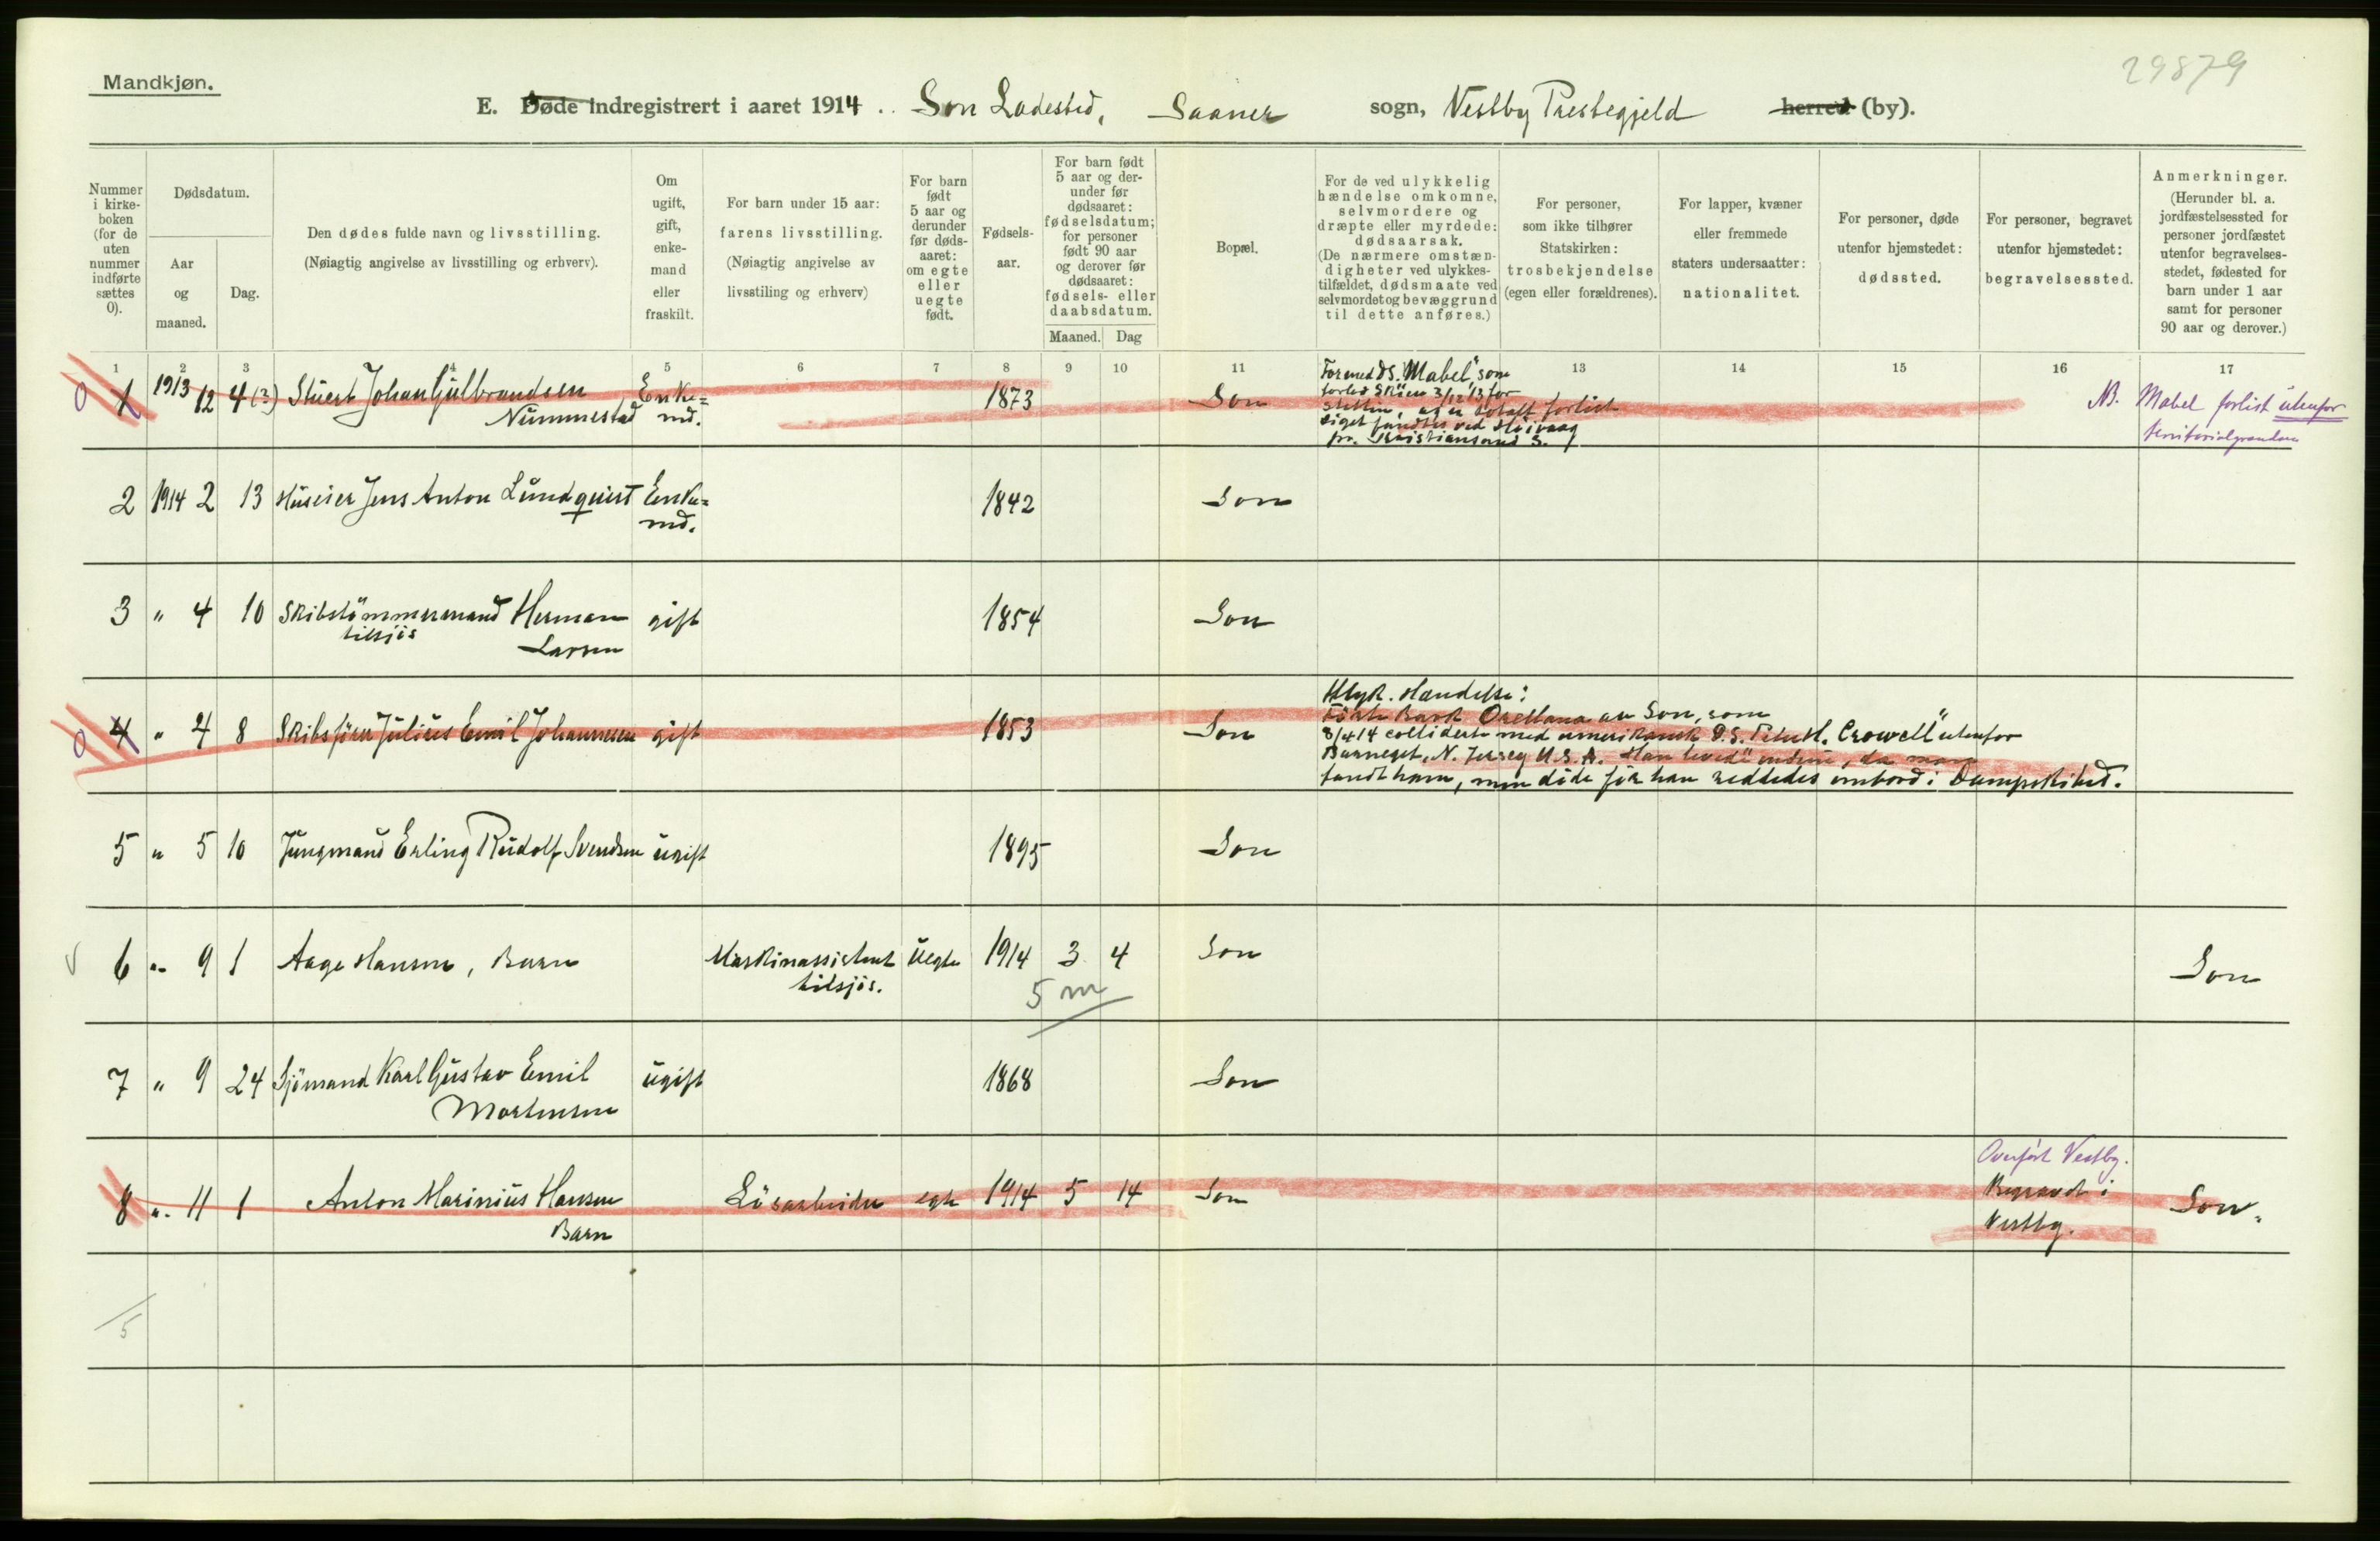 29879
Mandkjøn.
E. Døde indregistrert i aaret 1914 .. Son Ladested, Saaner sogn, Vestby Prestegjeld herred (by).
Nummer i kirke-boken (for de uten nummer indførte sættes 0).
Dødsdatum.
Aar og maaned.
Dag.
Den dødes fulde navn og livsstilling.
(Nøiagtig angivelse av livsstilling og erhverv).
Om ugift, gift, enke-mand eller fraskilt.
For barn under 15 aar: farens livsstilling.
(Nøiagtig angivelse av livsstiling og erhverv)
For barn født 5 aar og derunder før døds-aaret: om egte eller uegte født.
Fødsels-aar.
For barn født 5 aar og der-under før dødsaaret: fødselsdatum; for personer født 90 aar og derover før dødsaaret: fødsels- eller daabsdatum.
Maaned. Dag
Bopæl.
For de ved ulykkelig hændelse omkomne, selvmordere og dræpte eller myrdede: dødsaarsak.
(De nærmere omstæn-digheter ved ulykkes-tilfældet, dødsmaate ved selvmordet og bevæggrund til dette anføres.)
For personer, som ikke tilhører Statskirken: trosbekjendelse (egen eller forældrenes).
For lapper, kvæner eller fremmede staters undersaatter: nationalitet.
For personer, døde utenfor hjemstedet: dødssted.
For personer, begravet utenfor hjemstedet: begravelsessted.
Anmerkninger.
(Herunder bl. a. jordfæstelsessted for personer jordfæstet utenfor begravelses-stedet, fødested for barn under 1 aar samt for personer 90 aar og derover.)
1 2 3 4 5 6 7 8 9 10 11 12 13 14 15 16 17
0 1 1913 12 4 (3) Stuert Johan Gulbrandsen Enke= 1873 Son
Nummestad md.
For med DS. "Mabel" som
forlod Skien 3/12 13 for
Stettin, og er totalt forlist
Liget fandtes ved Høivaag
pr. Kristiansand S.
NB. Mabel forlist utenfor
territorialgrændsen
2 1914 2 13 Huseier Jens Anton Lundquist Enke= 1842 Son
md.
3 " 4 10 Skibstömmermand Herman gift 1854 Son
tilsjös Larsen
0 4 " 4 8 Skibsförer Julius Emil Johannesen gift 1853 Son
Ulyk. Hændelse:
Förte Bark Orellana av Son, som
8/4 14 colliderte med amerikansk D.S. Peter H. Crowell" utenfor
Barneget, N. Jersey U.S.A. Han levede endnu, da man
fandt ham, men döde för han reddedes ombord i Dampskibet.
5 " 5 10 Jungmand Erling Rudolf Svendsen ugift 1895 Son
6 " 9 1 Aage Hansen, Barn Maskinassistent uegte 1914 3 4 Son Son
tilsjös.
5 m
7 " 9 24 Sjömand Karl Gustav Emil ugift 1868 Son
Mortensen
Overført Vestby.
8 " 11 1 Anton Marinius Hansen Lösarbeider egte 1914 5 14 Son Begravet i Son.
Barn Vestby.
5